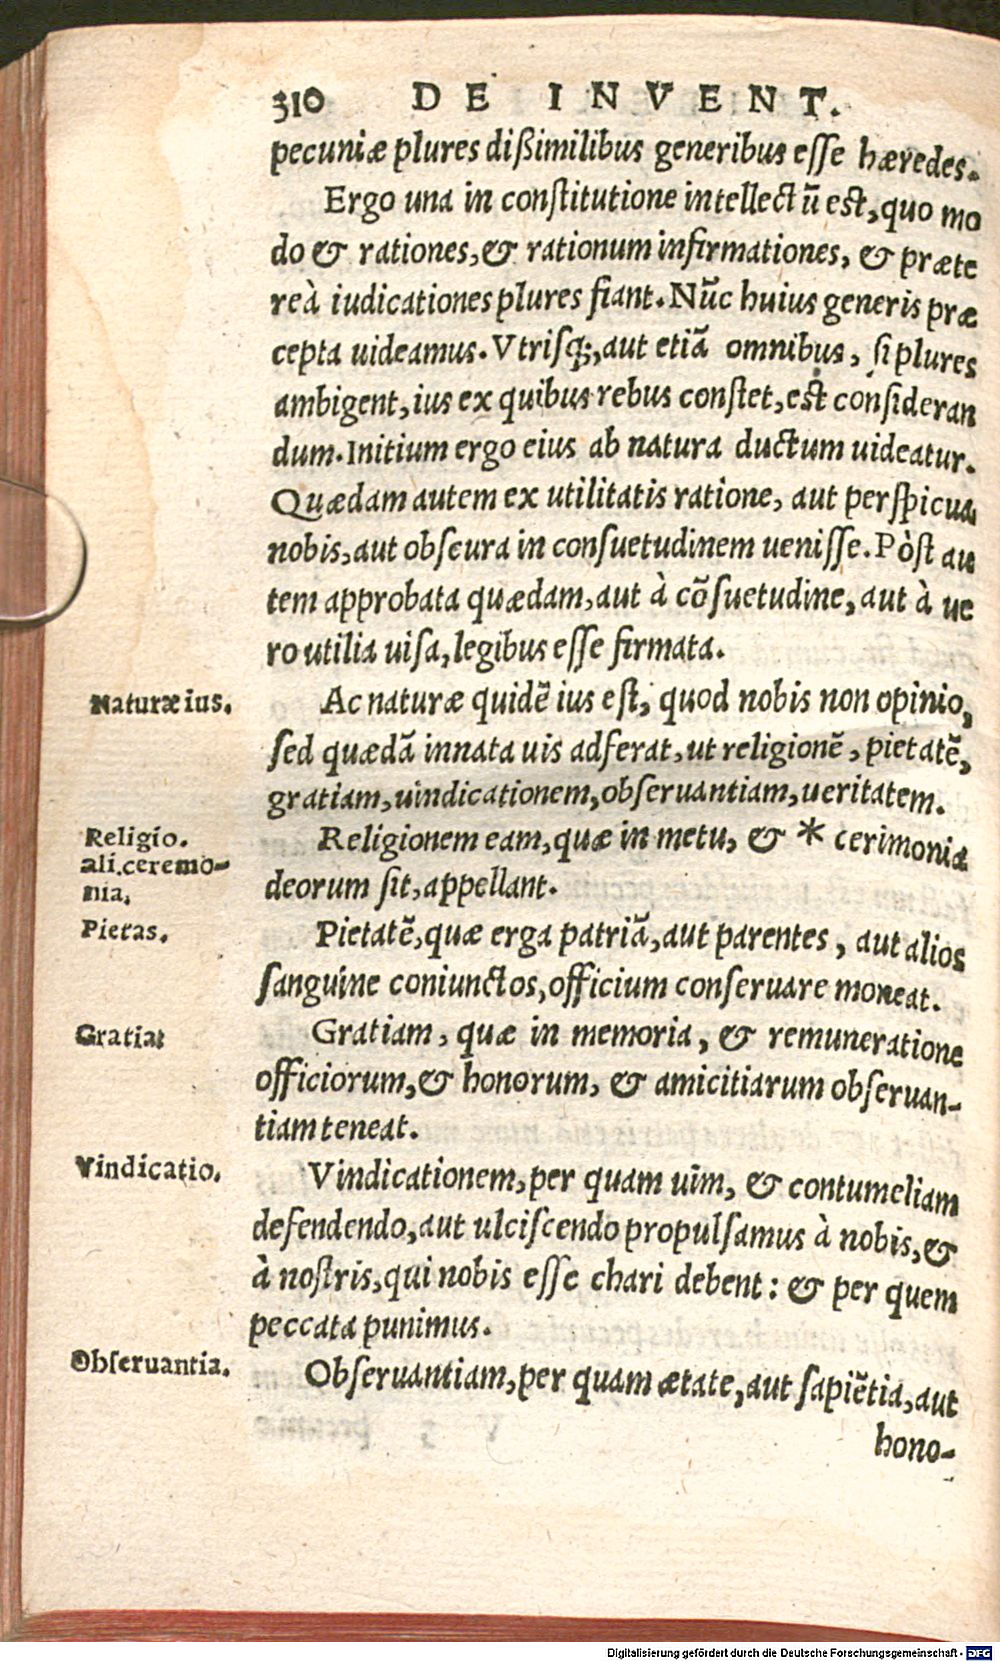 310 DE INVENT.
pecuniæ plures dißimilibus generibus esse hæredes.
Ergo una in constitutione intellectũ est, quo mo
do & rationes, & rationum infirmationes, & præte
reà iudicationes plures fiant. Nũc huius generis præ
cepta uideamus. Vtrisq;, aut etiã omnibus, si plures
ambigent, ius ex quibus rebus constet, est consideran
dum. Initium ergo eius ab natura ductum uideatur.
Quædam autem ex utilitatis ratione, aut perspicua
nobis, aut obscura in consuetudinem uenisse. Pòst au
tem approbata quædam, aut à cõsuetudine, aut à ue
ro utilia uisa, legibus esse firmata.
Naturæ ius. Ac naturæ quidẽ ius est, quod nobis non opinio,
sed quædã innata uis adferat, ut religionẽ, pietatẽ,
gratiam, uindicationem, obseruantiam, ueritatem.
Religio. Religionem eam, quæ in metu, & * cerimonia
ali. ceremo-
nia. deorum sit, appellant.
Pietas. Pietatẽ, quæ erga patriã, aut parentes, aut alios
sanguine coniunctos, officium conseruare moneat.
Gratia: Gratiam, quæ in memoria, & remuneratione
officiorum, & honorum, & amicitiarum obseruan-
tiam teneat.
Vindicatio. Vindicationem, per quam uim, & contumeliam
defendendo, aut ulciscendo propulsamus à nobis, &
à nostris, qui nobis esse chari debent: & per quem
peccata punimus.
Obseruantia. Obseruantiam, per quam ætate, aut sapiẽtia, aut
hono-
Digitalisierung gefördert durch die Deutsche Forschungsgemeinschaft - DFG